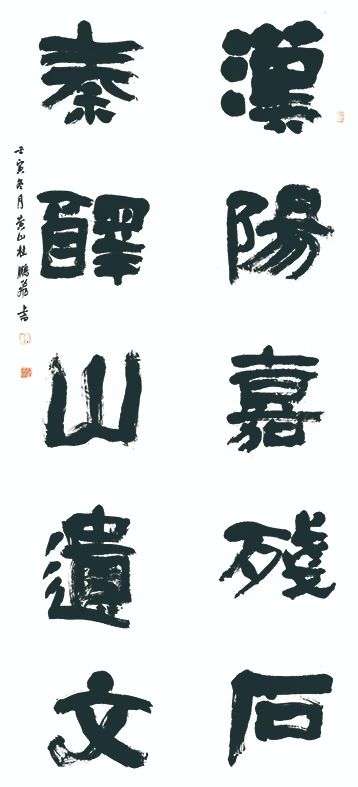 漢陽嘉殘石
秦嶧山遺文
壬寅冬月黄山杜鵬飛書